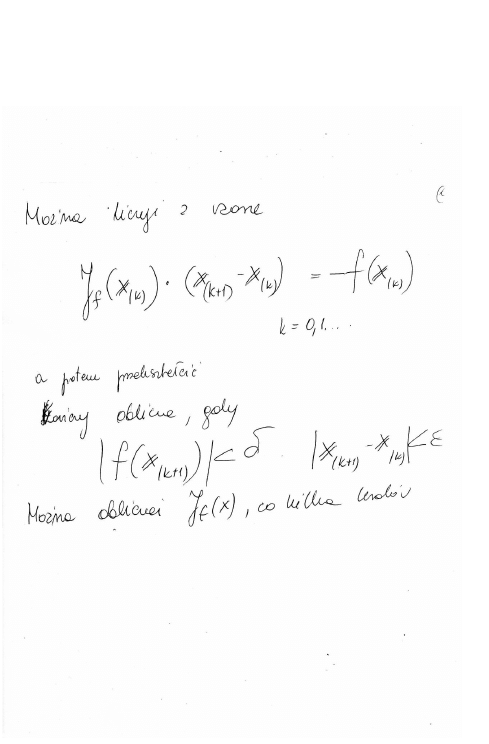 Można liczyć z wzoru
J_f(x_(k)) · (x_(k+1) - x_(k)) = -f(x_(k))
k = 0,1....
a potem przekształcić
Kończymy obliczenia, gdy
|f(x_(k+1))| < δ |x_(k+1) - x_(k)| < ε
Można obliczać J_f(x), co kilka kroków